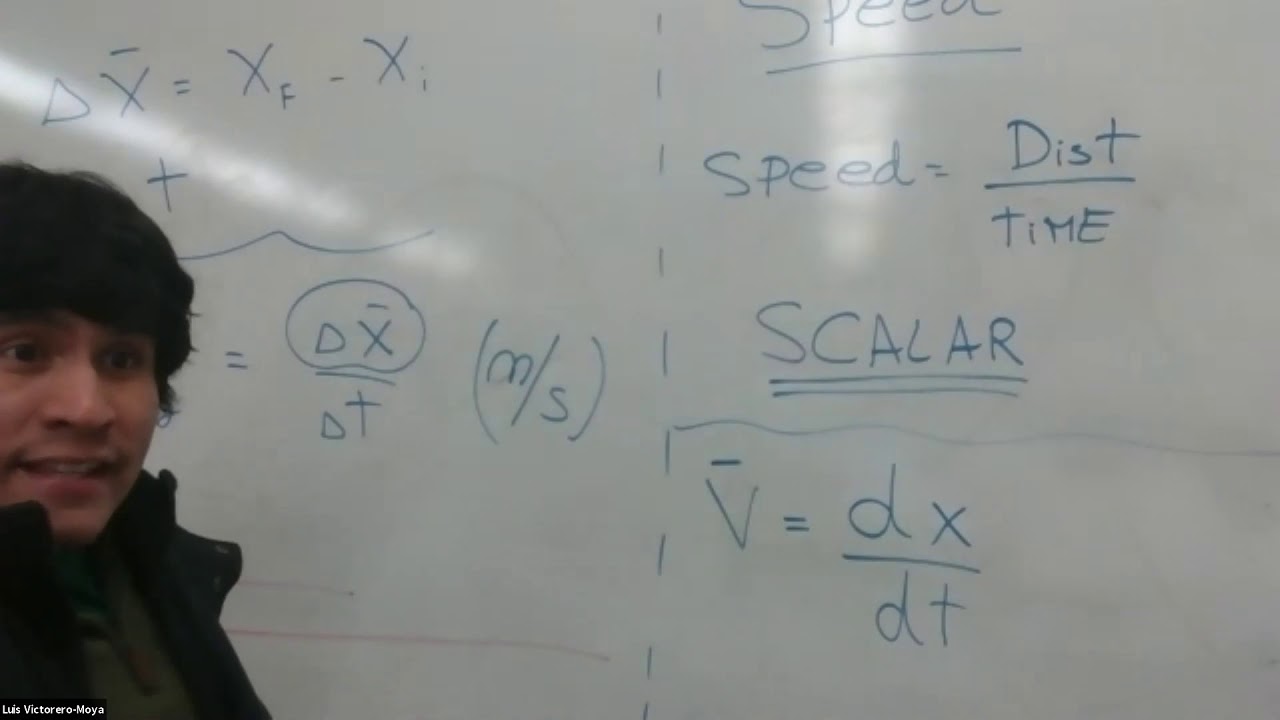 Δx̄ = X_F - X_i
t
= Δx̄/Δt (m/s)
Speed
Speed = Dist/TiME
SCALAR
V̄ = dx/dt
Luis Victorero-Moya